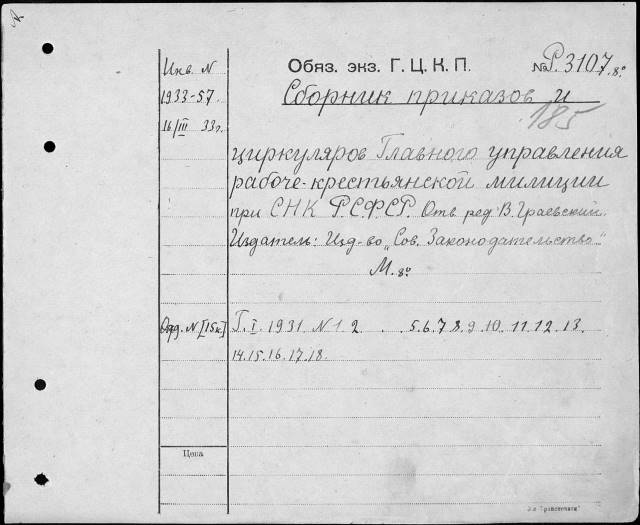 Инв. N
1933-57.
16/III 33 г.
Обяз. экз. Г. Ц. К. П. № Р.3107 8°
Сборник приказов и
185
циркуляров Главного управления
рабоче-крестьянской милиции
при СНК Р.С.Ф.С.Р. Отв ред. В. Граевский.
Издатель: Изд-во „Сов. Законодательство"
М. 8°
N [15к.] Г. I. 1931. N 1. 2 . . 5. 6. 7. 8. 9. 10. 11. 12. 13.
14. 15. 16. 17. 18.
Цена